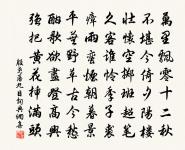 萬里飄零十二秋
不堪今倚夕陽樓
壯懷空擲班超筆
久客誰憐季子裘
瘴雨蠻煙朝暮景
平蕪野草古今愁
酣歌欲盡登高興
強把黃花插滿頭
殷堯藩九日詩典網